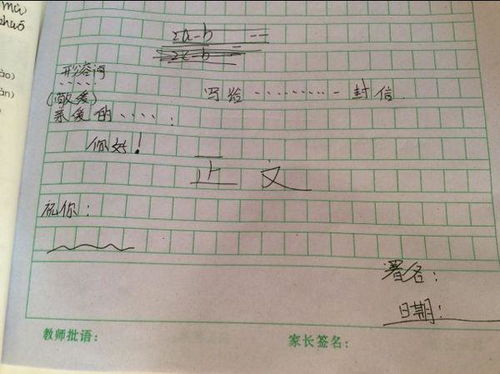 mù
zhuō
2a-b =
2a-b =
ào)
àn)
形容词
写给………封信
(敬爱)
亲爱的……:
你好!
正文
祝你:
署名:
日期:
教师批语:
家长签名: